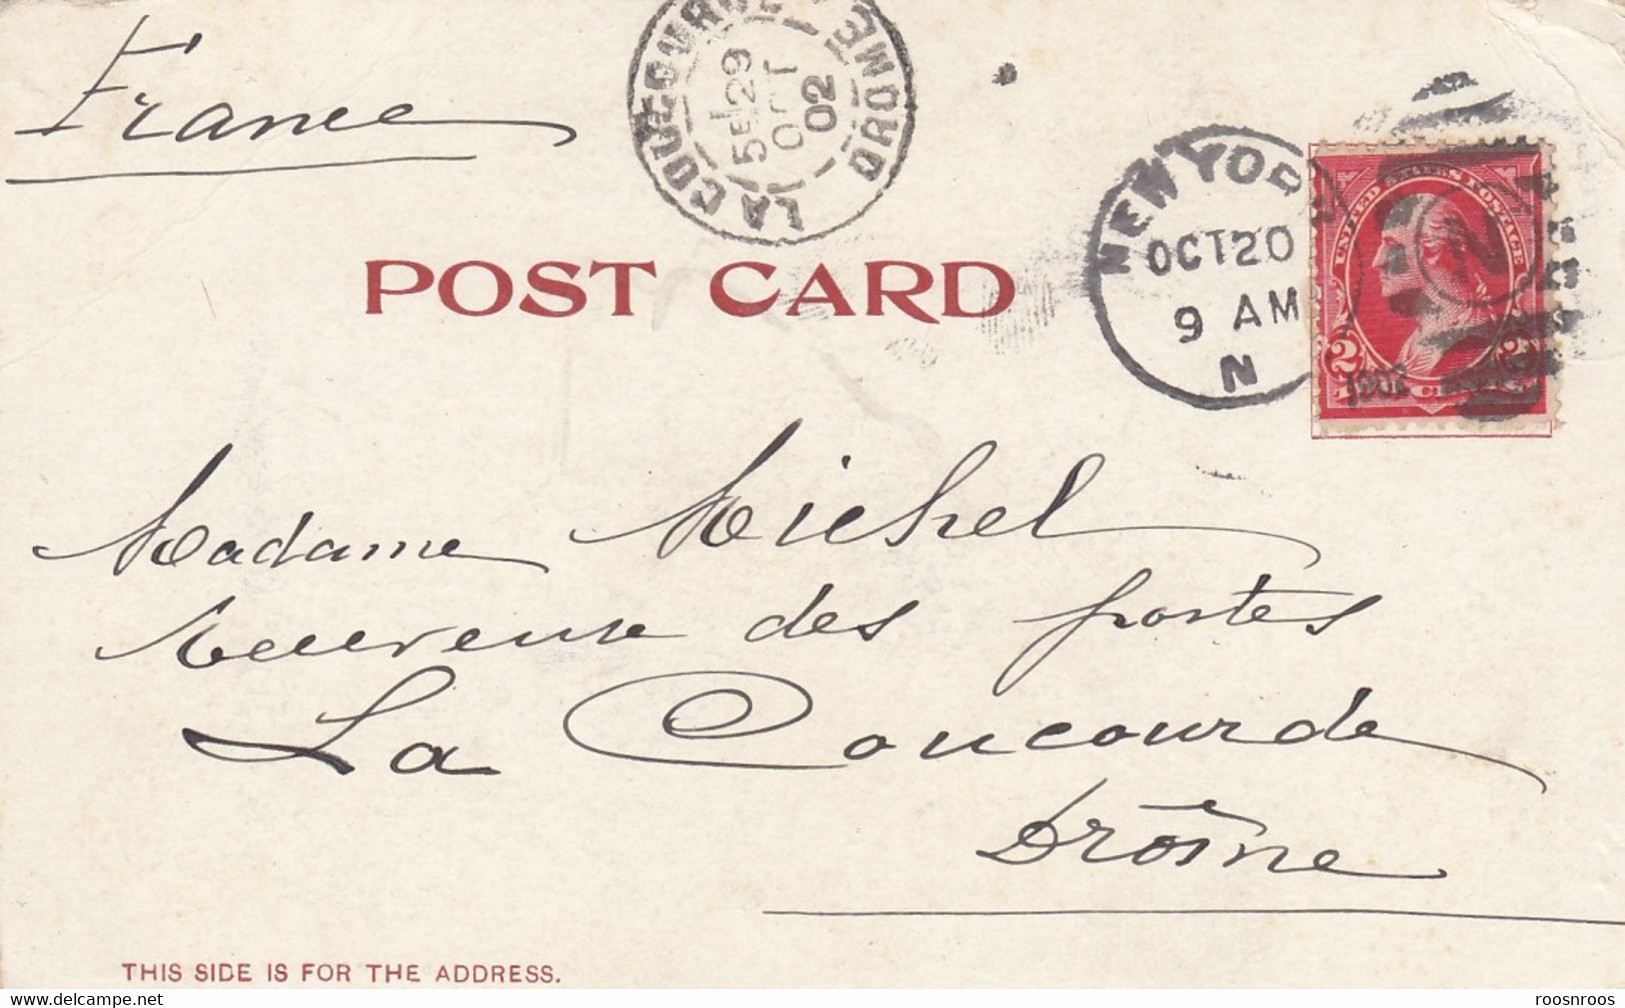 France
LA COUCOURDE
5E 29
OCT
02
DROME
NEW YORK
OCT 20
9 AM
N
1902
UNITED STATES POSTAGE
N
2 2
CENTS
POST CARD
Madame Michel
Receveuse des postes
La Coucourde
Drôme
THIS SIDE IS FOR THE ADDRESS.
delcampe.net
roosnroos